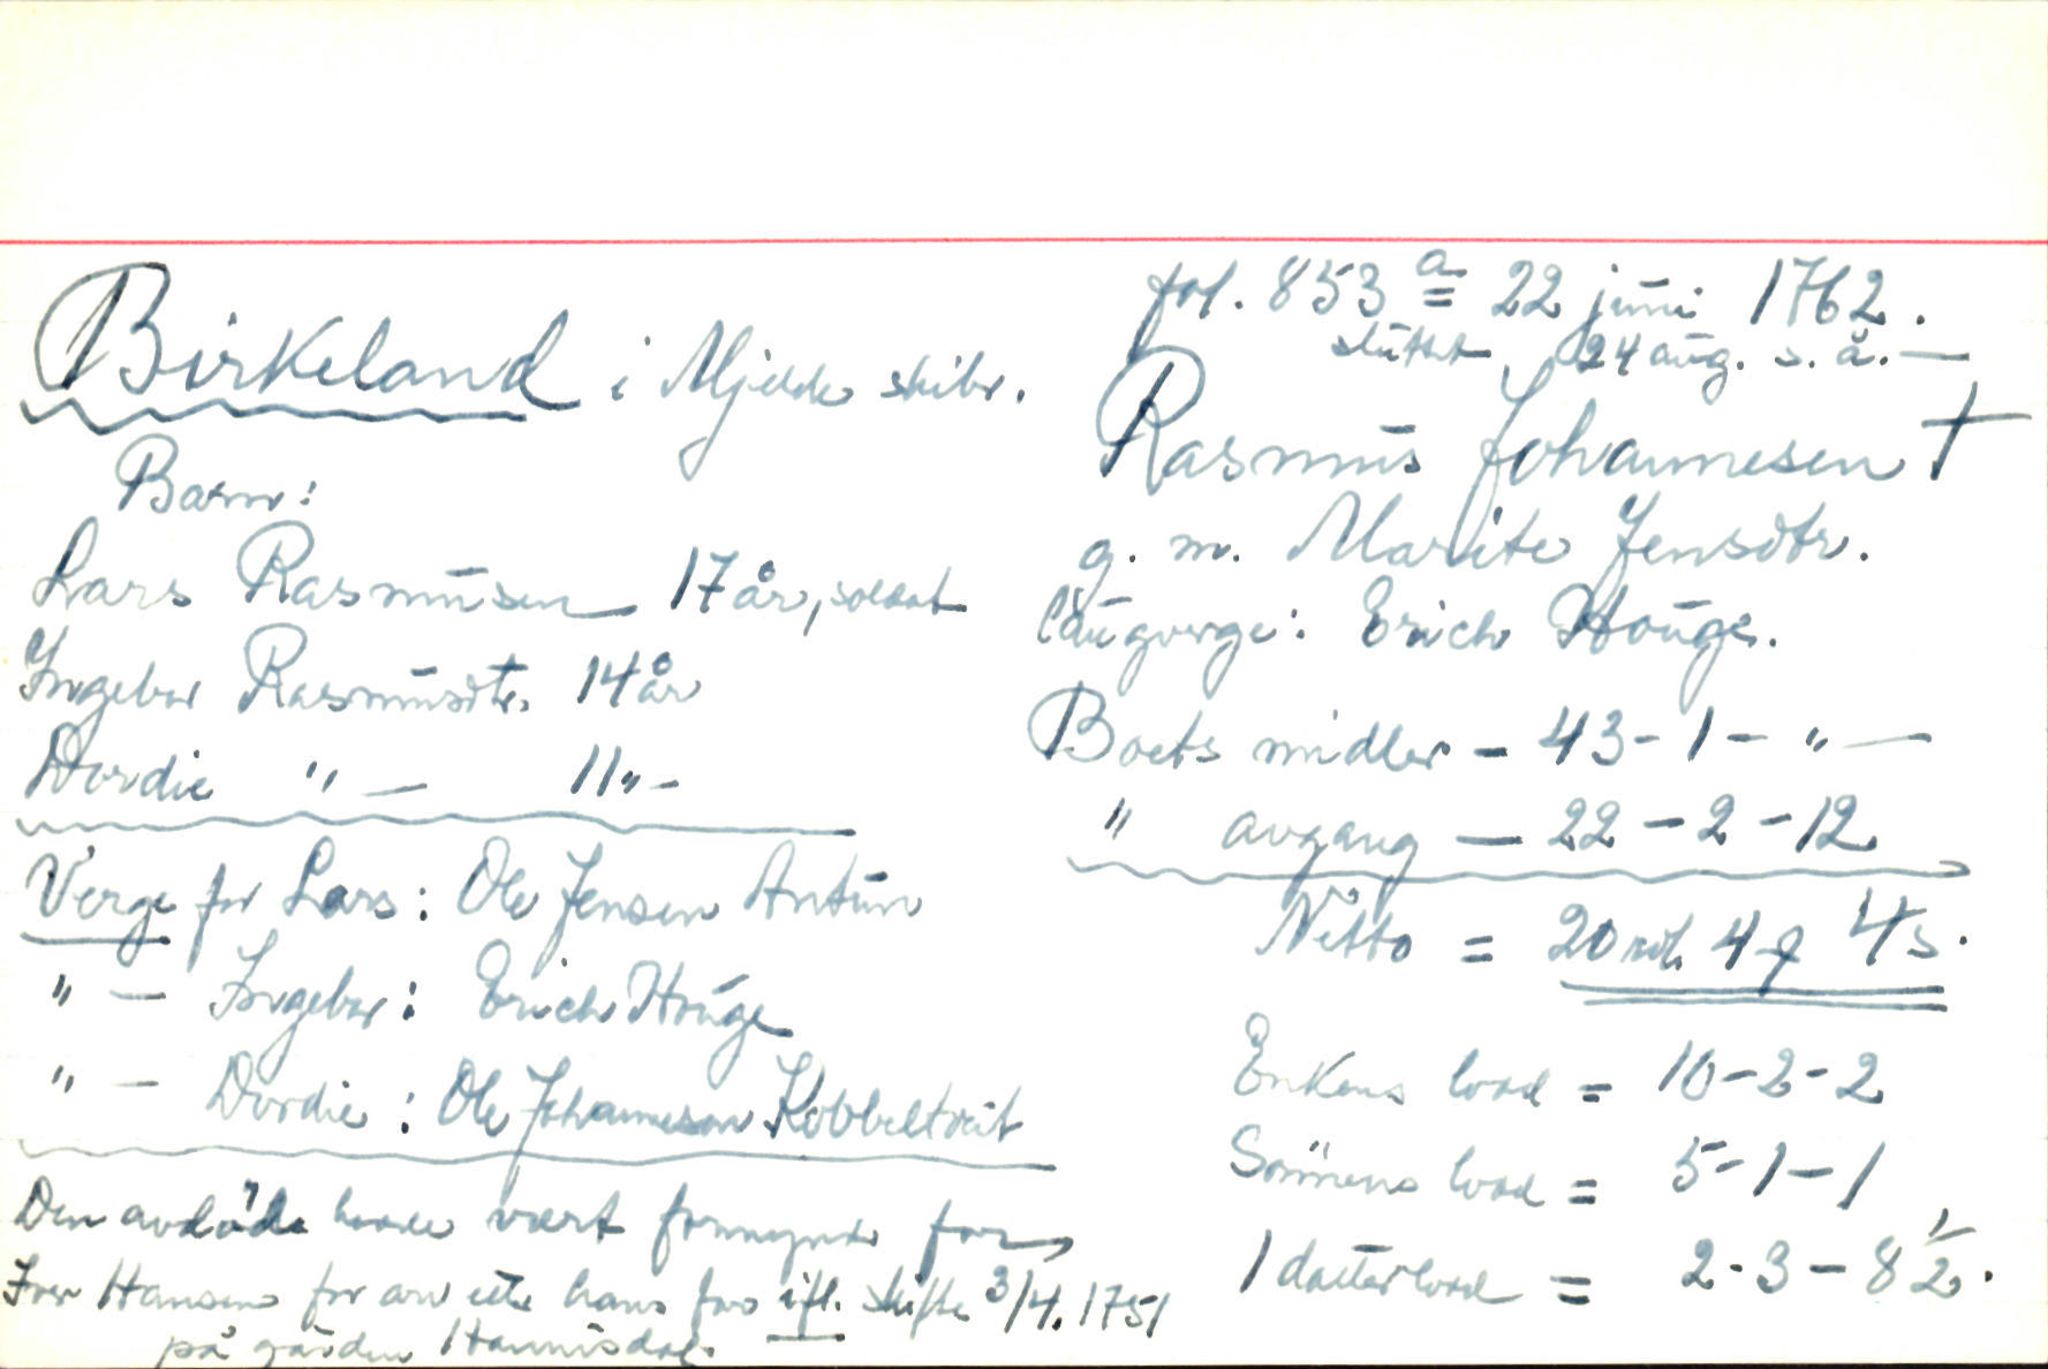 Birkeland i Mjelde skibr.
Barn:
Lars Rasmusen 17 år, soldat
Ingebor Rasmusdtr. 14 år
Dordie " — 11 " -
Verge for Lars: Ole Jensen Antun
" — Ingebor: Erich Houge
" — Dordie: Ole Johannesen Kobbeltveit
Den avdöde hadde vært formynder for
Iver Hansen for arv etter hans far ifl. skifte 3/4. 1751
på gården Hannisdal.
fol. 853 a = 22 juni 1762.
sluttet 24 aug. s. å. —
Rasmus Johannesen †
g. m. Marite Jensdtr.
laugverge: Erich Houge.
Boets midler - 43 - 1 - " —
" avgang — 22 - 2 - 12
Netto = 20 rdl. 4 4 s.
Enkens lodd = 10 - 2 - 2
Sönnens lodd = 5 - 1 - 1
1 datterlodd = 2 - 3 - 8 1/2.